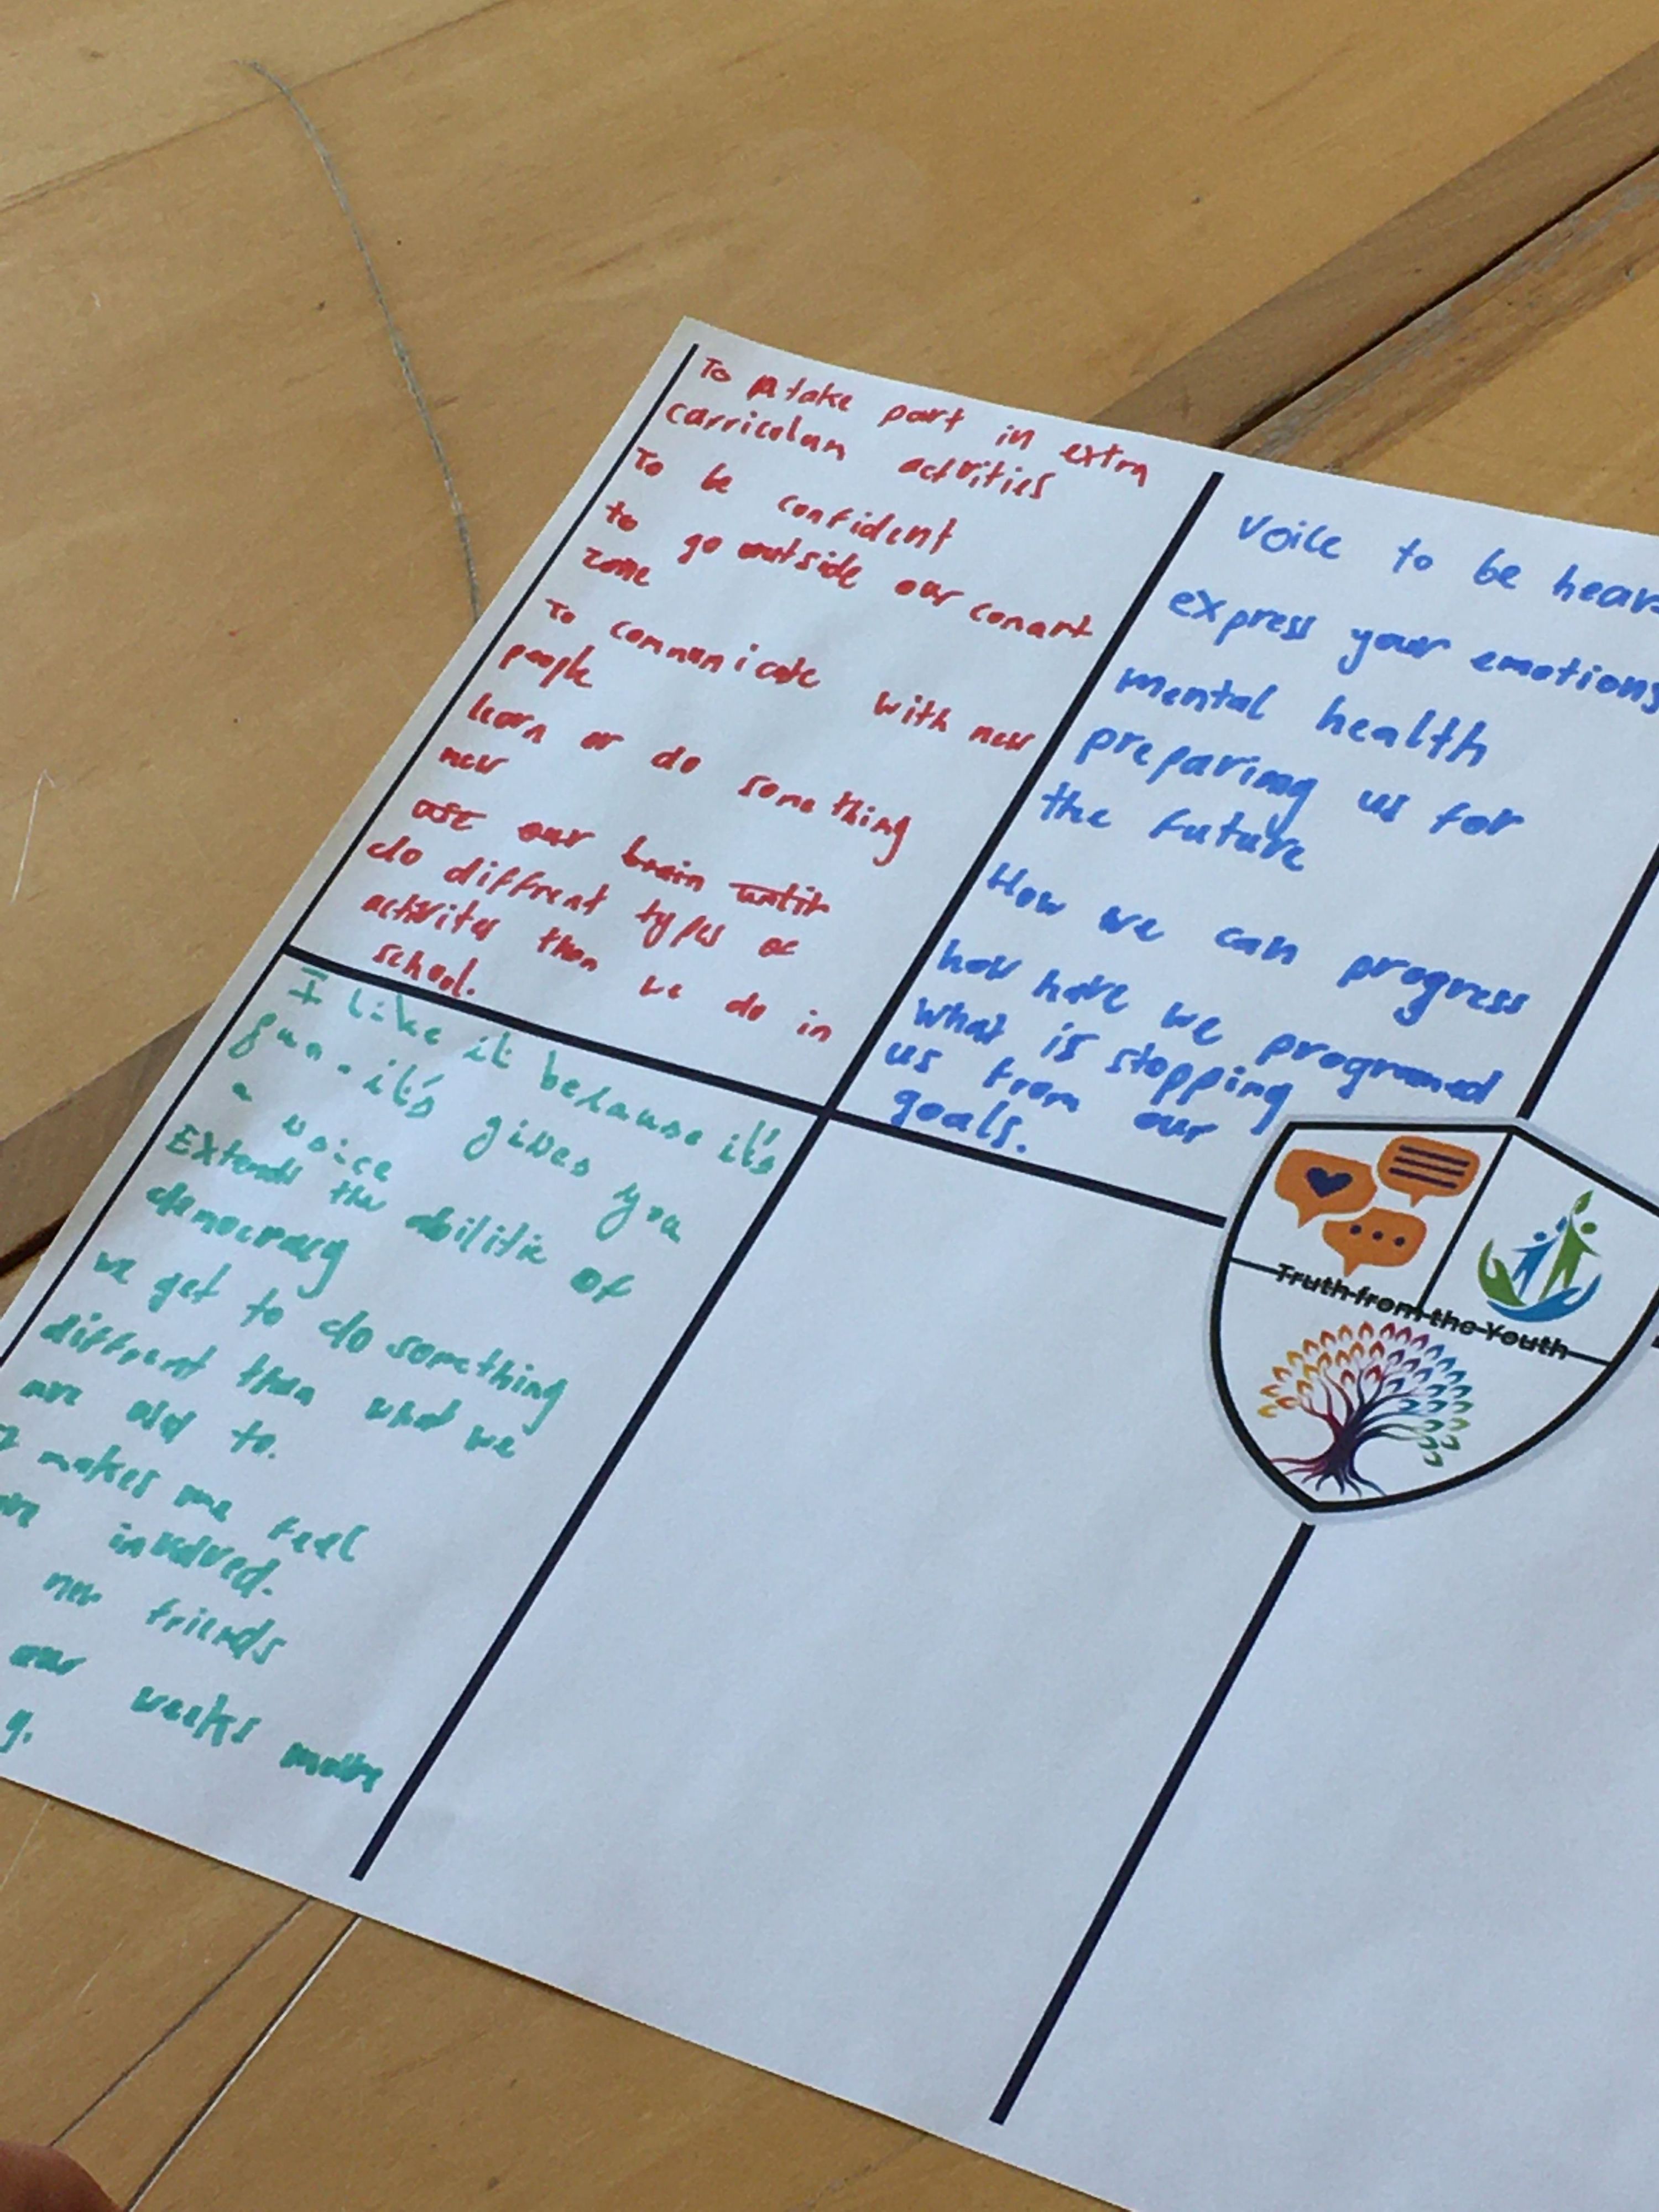 To take part in extra
carricolam activities
To be confident
to go outside our conart
zone
To communicate with new
people
learn or do something
new
use our brain
do diffrent types of
activites then we do in
school.
voice to be hear
express your emotions
mental health
preparing us for
the future
How we can progress
how have we programed
what is stopping
us from our
goals.
I like it because it's
fun - it's gives you
a voice
Extends the abilitie of
democracy
we get to do something
diffrent then what we
are old to.
makes me feel
involved.
new friends
our weeks more
g.
Truth from the Youth